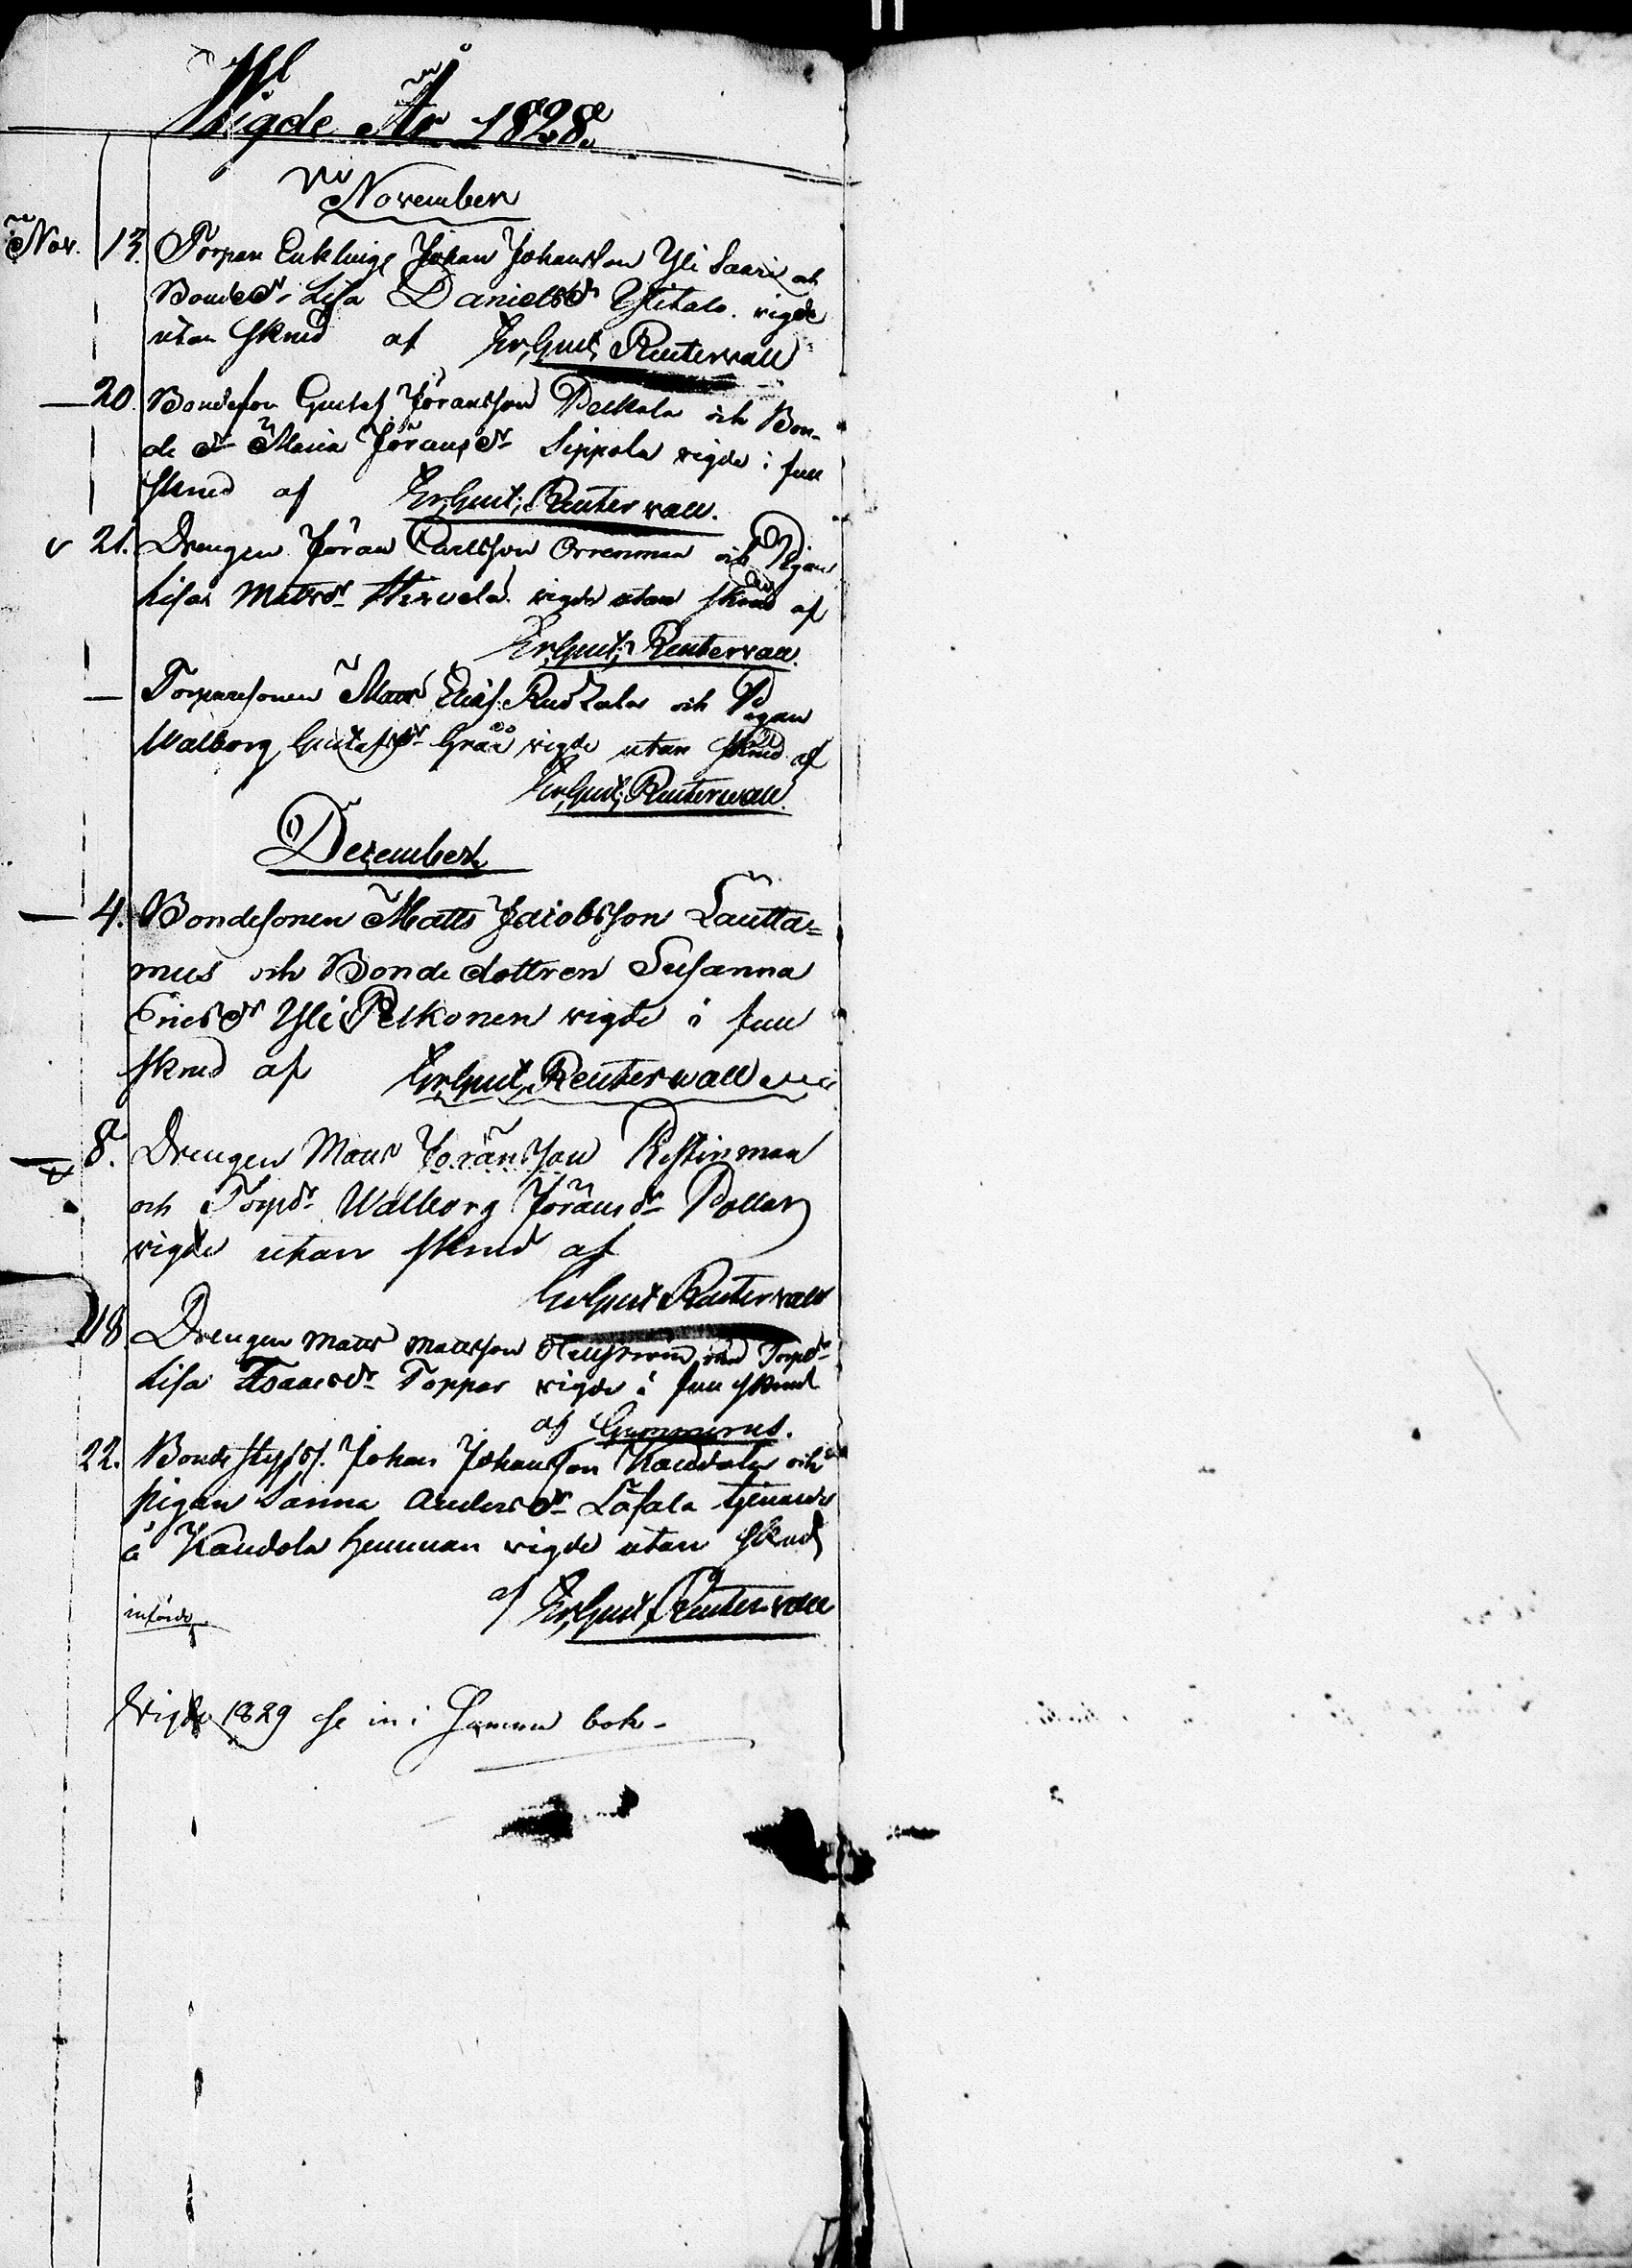 Wigde År 1828.
November
Nov. 13. Torpare Enklinge Johan Johansson Yli Saari och
Bonded:r Lisa Danielsd:r Ylitalo. vigde
utan skrud af Er; Gust; Reuterwall
20. Bondeson Gustaf Jöransson Peckola och Bon-
de d:r Maria Jöransd:r Sippola vigde i full
skrud af Er; Gust; Reuterwall.
21. Drengen Jöran Carlsson Orrenmaa och Pigan
Lisa Mattsd:r Hervela vigde utan skrud af
Er; Gust; Reuterwall.
Torparesonen Matts Eliæs. och Pigan
Walborg Gustafsd:r Gråå vigde utan skrud af
Er; Gust; Reuterwall.
December
4. Bondesonen Matts Jacobsson Lautta=
mus och Bondedottren Susanna
Ericsd:r Yli Pelkonen vigde i full
skrud af Er; Gust; Reuterwall
8. Drengen Matts Jöransson
och Torpd:r Walborg Jöransd:r Pollari
vigde utan skrud af
Er Gust Reuterwall
18. Drengen Matts Mattsson och Torpd:r
Lisa Isaacsd:r Toppar vigde i full skrud
af Gummerus.
22. Bonde Johan Johansson Kandola och
pigan Sanna Andersd:r Lasala tjenande
å Kandola hemman vigde utan skrud
af Er; Gust; Reuterwall
införde
Wigde 1829 se in i Samma bok-